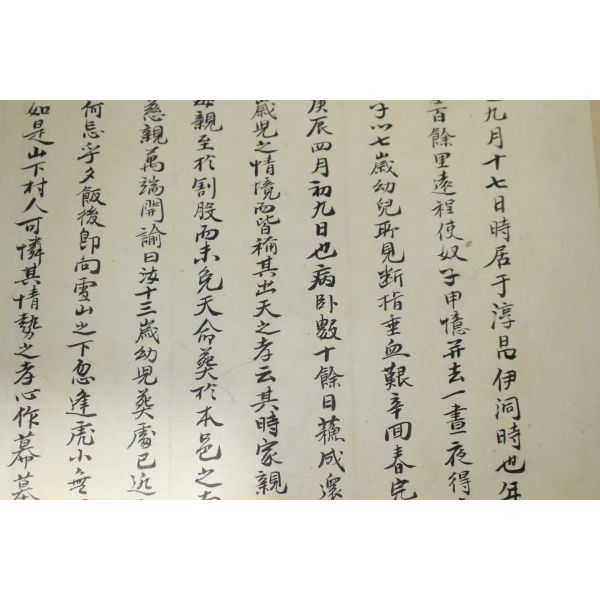 九月十七日時居于淳昌伊洞時也年
百餘里遠程使奴子申憶并去一晝夜得
子以七歲幼兒所見斷指垂血艱辛回春完
庚辰四月初九日也病卧數十餘日蘓成還
歲児之情境而皆稱其出天之孝云其時家親
親至於割股而未免天命葬於本邑之
慈親萬端開諭曰汝十三歲幼児葬處已近
何忘乎夕飯後即向雪山之下忽逢虎小無
如是山下村人可憐其情勢之孝心作幕墓